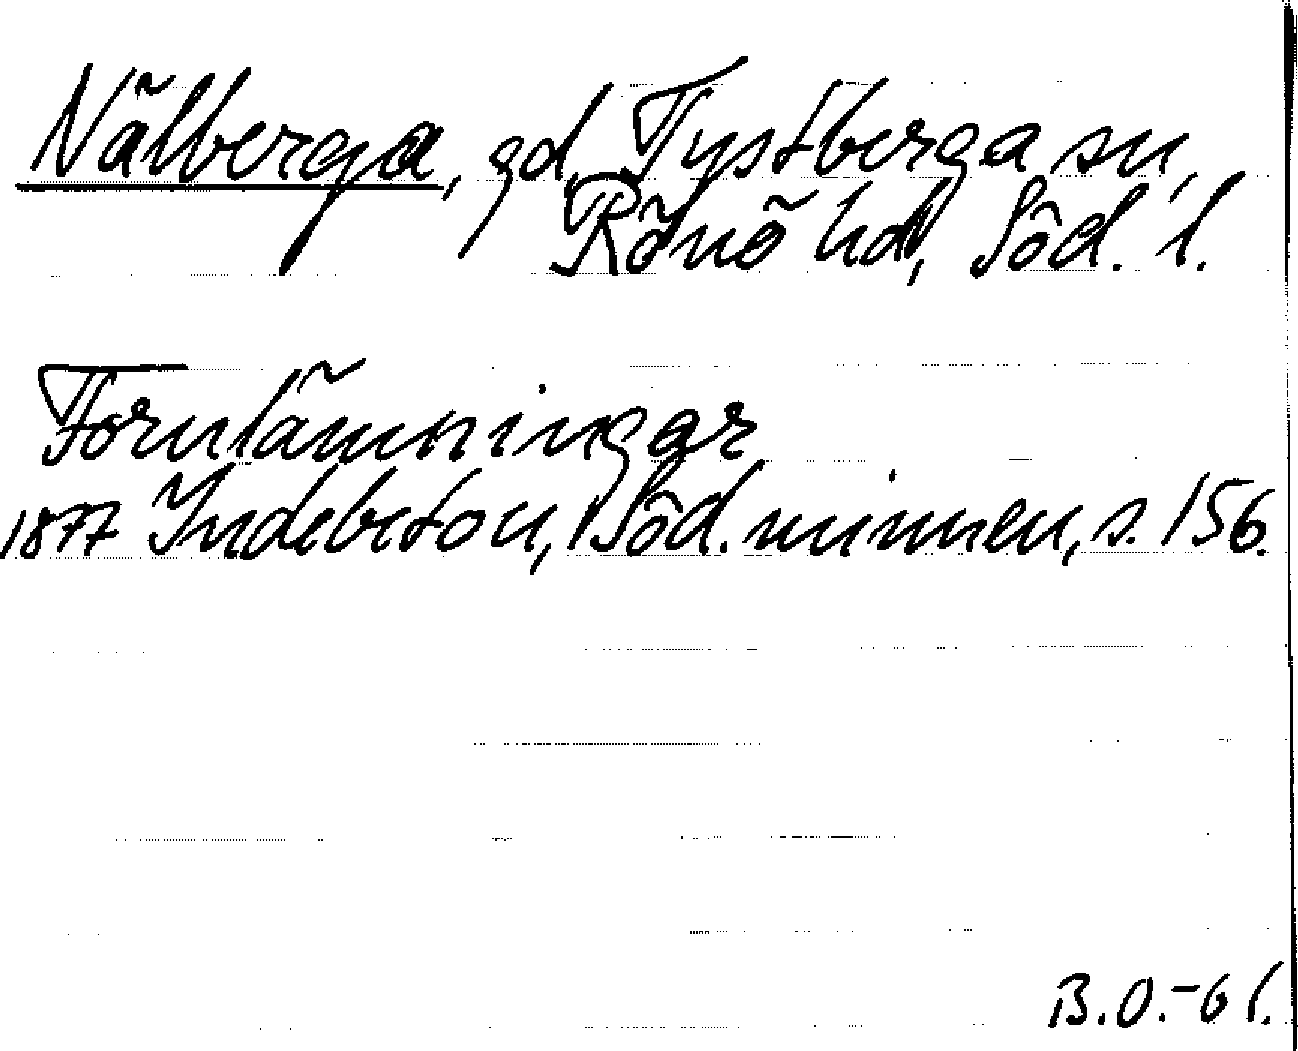 Nälberga, gd, Tystberga sn,
Rönö hd, Söd. l.
Fornlämningar
1877 Indebetou, Söd. minnen, s. 156.
B.O.-61.